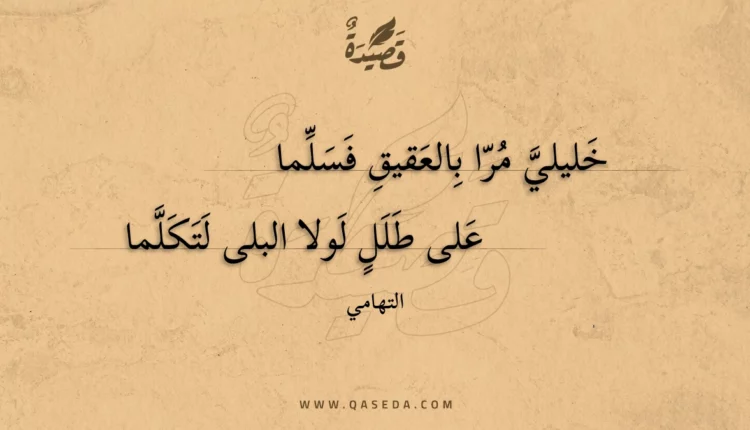 قَصِيدَةٌ
خَليليَّ مُرّا بِالعَقيقِ فَسَلِّما
عَلى طَلَلٍ لَولا البلى لَتَكَلَّما
التهامي
WWW.QASEDA.COM